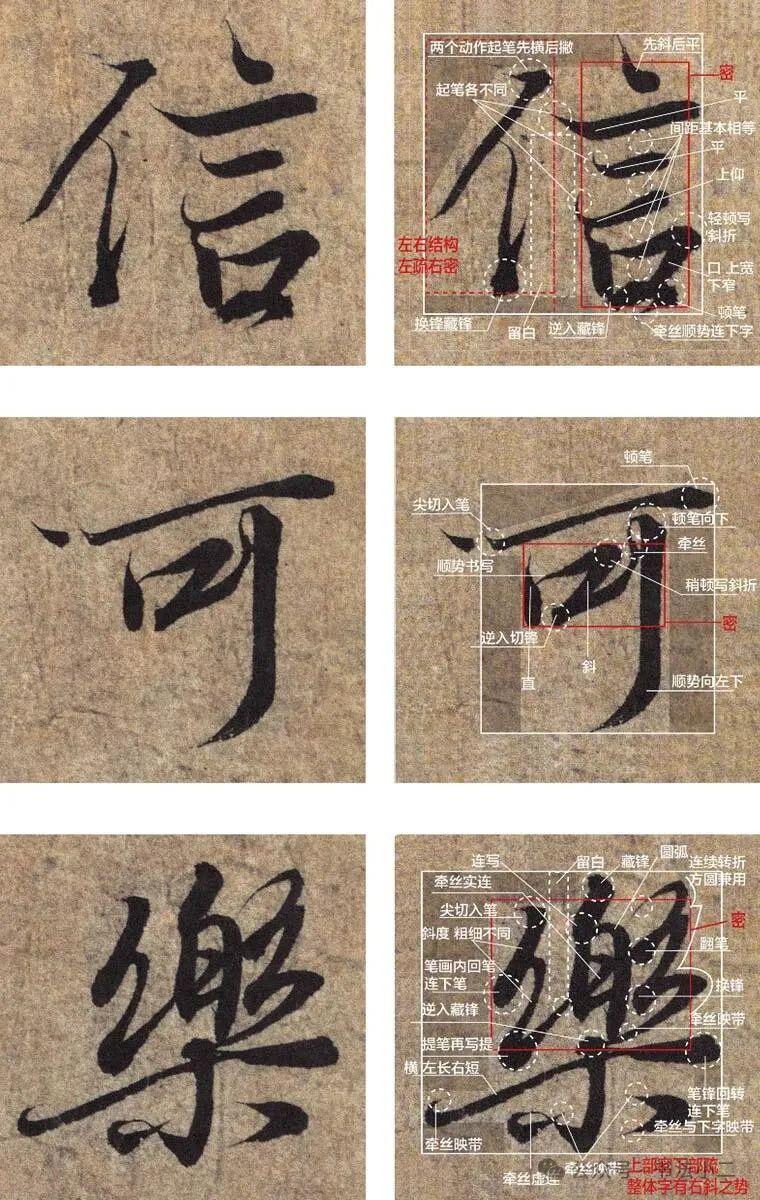 信
两个动作起笔先横后撇
先斜后平
密
起笔各不同
平
间距基本相等
平
上仰
轻顿写
斜折
左右结构
左疏右密
口 上宽
下窄
顿笔
换锋藏锋
留白
逆入藏锋
牵丝顺势连下字
可
顿笔
尖切入笔
顿笔向下
牵丝
顺势书写
稍顿写斜折
密
逆入切锋
斜
直
顺势向左下
樂
圆弧
连写
留白
藏锋
连续转折
方圆兼用
牵丝实连
尖切入笔
密
斜度 粗细不同
翻笔
笔画内回笔
连下笔
换锋
逆入藏锋
牵丝映带
提笔再写提
横 左长右短
笔锋回转
连下笔
牵丝与下字映带
牵丝映带
牵丝映带
牵丝虚连
上部密下部疏
整体字有右斜之势